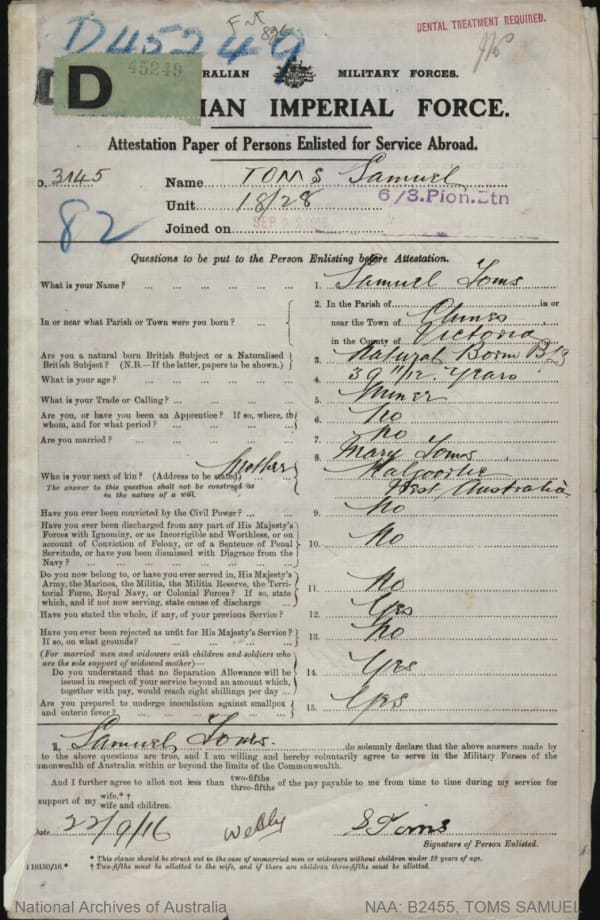 D45249
DENTAL TREATMENT REQUIRED.
D 45249
RALIAN MILITARY FORCES.
IAN IMPERIAL FORCE.
Attestation Paper of Persons Enlisted for Service Abroad.
o. 3145 Name TOMS Samuel
Unit 18/28 6/3.Pion.Btn
82
Joined on SEP
Questions to be put to the Person Enlisting before Attestation.
What is your Name? ... 1. Samuel Toms
In or near what Parish or Town were you born? ... 2. In the Parish of in or
near the Town of Clunes
in the County of Victoria
Are you a natural born British Subject or a Naturalised British Subject? (N.B.—If the latter, papers to be shown.) 3. Natural Born
What is your age? ... 4. 39 11/12 Years
What is your Trade or Calling? ... 5. Miner
Are you, or have you been an Apprentice? If so, where, to whom, and for what period? ... 6. No
Are you married? ... 7. No
Who is your next of kin? (Address to be stated) Mother 8. Mary Toms
Kalgoorlie
West Australia
The answer to this question shall not be construed as in the nature of a will.
Have you ever been convicted by the Civil Power? ... 9. No
Have you ever been discharged from any part of His Majesty's Forces with Ignominy, or as Incorrigible and Worthless, or on account of Conviction of Felony, or of a Sentence of Penal Servitude, or have you been dismissed with Disgrace from the Navy? ... 10. No
Do you now belong to, or have you ever served in, His Majesty's Army, the Marines, the Militia, the Militia Reserve, the Territorial Force, Royal Navy, or Colonial Forces? If so, state which, and if not now serving, state cause of discharge ... 11. No
Have you stated the whole, if any, of your previous Service? 12. Yes
Have you ever been rejected as unfit for His Majesty's Service? If so, on what grounds? ... 13. No
(For married men and widowers with children and soldiers who are the sole support of widowed mother)—
Do you understand that no Separation Allowance will be issued in respect of your service beyond an amount which, together with pay, would reach eight shillings per day ... 14. Yes
Are you prepared to undergo inoculation against smallpox and enteric fever? ... 15. Yes
I, Samuel Toms. do solemnly declare that the above answers made by
to the above questions are true, and I am willing and hereby voluntarily agree to serve in the Military Forces of the
mmonwealth of Australia within or beyond the limits of the Commonwealth.
And I further agree to allot not less than two-fifths three-fifths of the pay payable to me from time to time during my service for
support of my wife.* † wife and children.
Date 22/9/16 S Toms
Signature of Person Enlisted.
* This clause should be struck out in the case of unmarried men or widowers without children under 18 years of age.
† Two-fifths must be allotted to the wife, and if there are children three-fifths must be allotted.
10150/16
National Archives of Australia NAA: B2455, TOMS SAMUEL